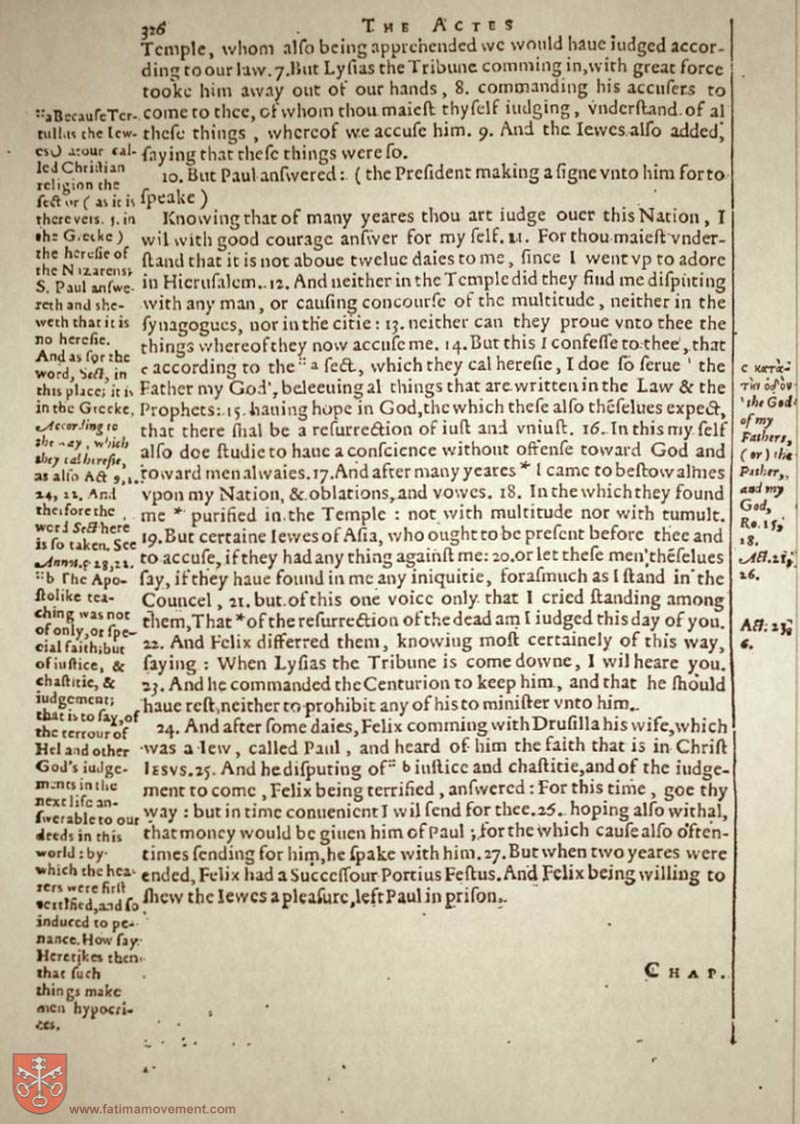 326
THE ACTES
Temple, whom alſo being apprehended we would haue iudged accor-
ding to our law. 7. But Lyſias the Tribune comming in, with great force
tooke him away out of our hands, 8. commanding his accuſers to
come to thee, of whom thou maieſt thyſelf iudging, vnderſtand of al
theſe things, whereof we accuſe him. 9. And the Iewes alſo added,
ſaying that theſe things were ſo.
10. But Paul anſwered: (the Preſident making a ſigne vnto him for to
ſpeake)
Knowing that of many yeares thou art iudge ouer this Nation, I
wil with good courage anſwer for my ſelf. 11. For thou maieſt vnder-
ſtand that it is not aboue twelue daies to me, ſince I went vp to adore
in Hieruſalem. 12. And neither in the Temple did they find me diſputing
with any man, or cauſing concourſe of the multitude, neither in the
ſynagogues, nor in the citie: 13. neither can they proue vnto thee the
things whereof they now accuſe me. 14. But this I confeſſe to thee, that
c according to the :: a ſect, which they cal hereſie, I doe ſo ſerue ' the
Father my God', beleeuing al things that are written in the Law & the
Prophets: 15. hauing hope in God, the which theſe alſo thẽſelues expect,
that there ſhal be a reſurrection of iuſt and vniuſt. 16. In this my ſelf
alſo doe ſtudie to haue a conſcience without offenſe toward God and
toward men alwaies. 17. And after many yeares * I came to beſtow almes
vpon my Nation, & oblations, and vowes. 18. In the which they found
me * purified in the Temple: not with multitude nor with tumult.
19. But certaine Iewes of Aſia, who ought to be preſent before thee and
to accuſe, if they had any thing againſt me: 20. or let theſe men thẽſelues
ſay, if they haue found in me any iniquitie, foraſmuch as I ſtand in the
Councel, 21. but of this one voice only that I cried ſtanding among
them, That * of the reſurrection of the dead am I iudged this day of you.
22. And Felix differred them, knowing moſt certainely of this way,
ſaying: When Lyſias the Tribune is come downe, I wil heare you.
23. And he commanded the Centurion to keep him, and that he ſhould
haue reſt, neither to prohibit any of his to miniſter vnto him.
24. And after ſome daies, Felix comming with Druſilla his wife, which
was a Iew, called Paul, and heard of him the faith that is in Chriſt
IESVS. 25. And he diſputing of :: b iuſtice and chaſtitie, and of the iudge-
ment to come, Felix being terrified, anſwered: For this time, goe thy
way: but in time conuenient I wil ſend for thee. 26. hoping alſo withal,
that money would be giuen him of Paul; for the which cauſe alſo often-
times ſending for him, he ſpake with him. 27. But when two yeares were
ended, Felix had a Succeſſour Portius Feſtus. And Felix being willing to
ſhew the Iewes a pleaſure, left Paul in priſon.
CHAP.
:: a Becauſe Ter-
tullus the Iew-
es
cal-
led Chriſtian
religion the
ſect or (as it is
there verſ. 5. in
the Greeke)
the hereſie of
the Nazarens;
S. Paul anſwe-
reth and ſhe-
weth that it is
no hereſie.
And as for the
word, Sect, in
this place; it is
in the Greeke,
According to
the way, which
they cal hereſie,
as alſo Act 9, 1.
24, 22. And
therefore the
word Sect here
is ſo taken. See
Annot. c 28, 22.
:: b The Apo-
ſtolike tea-
ching was not
of only, or ſpe-
cial faith; but
of iuſtice, &
chaſtitie, &
iudgement;
that is to ſay, of
the terrour of
Hel and other
God's iudge-
ments in the
next life an-
ſwerable to our
deeds in this
world: by
which the hea-
rers were firſt
terrified, and ſo
induced to pe-
nance. How ſay
Heretikes then
that ſuch
things make
men hypocri-
tes.
c κατὰ
τὴν ὁδόν
' the God
of my
Fathers,
(or) the
Father,
and my
God,
Ro. 15,
18.
Act. 21,
26.
Act. 23,
6.
www.fatimamovement.com